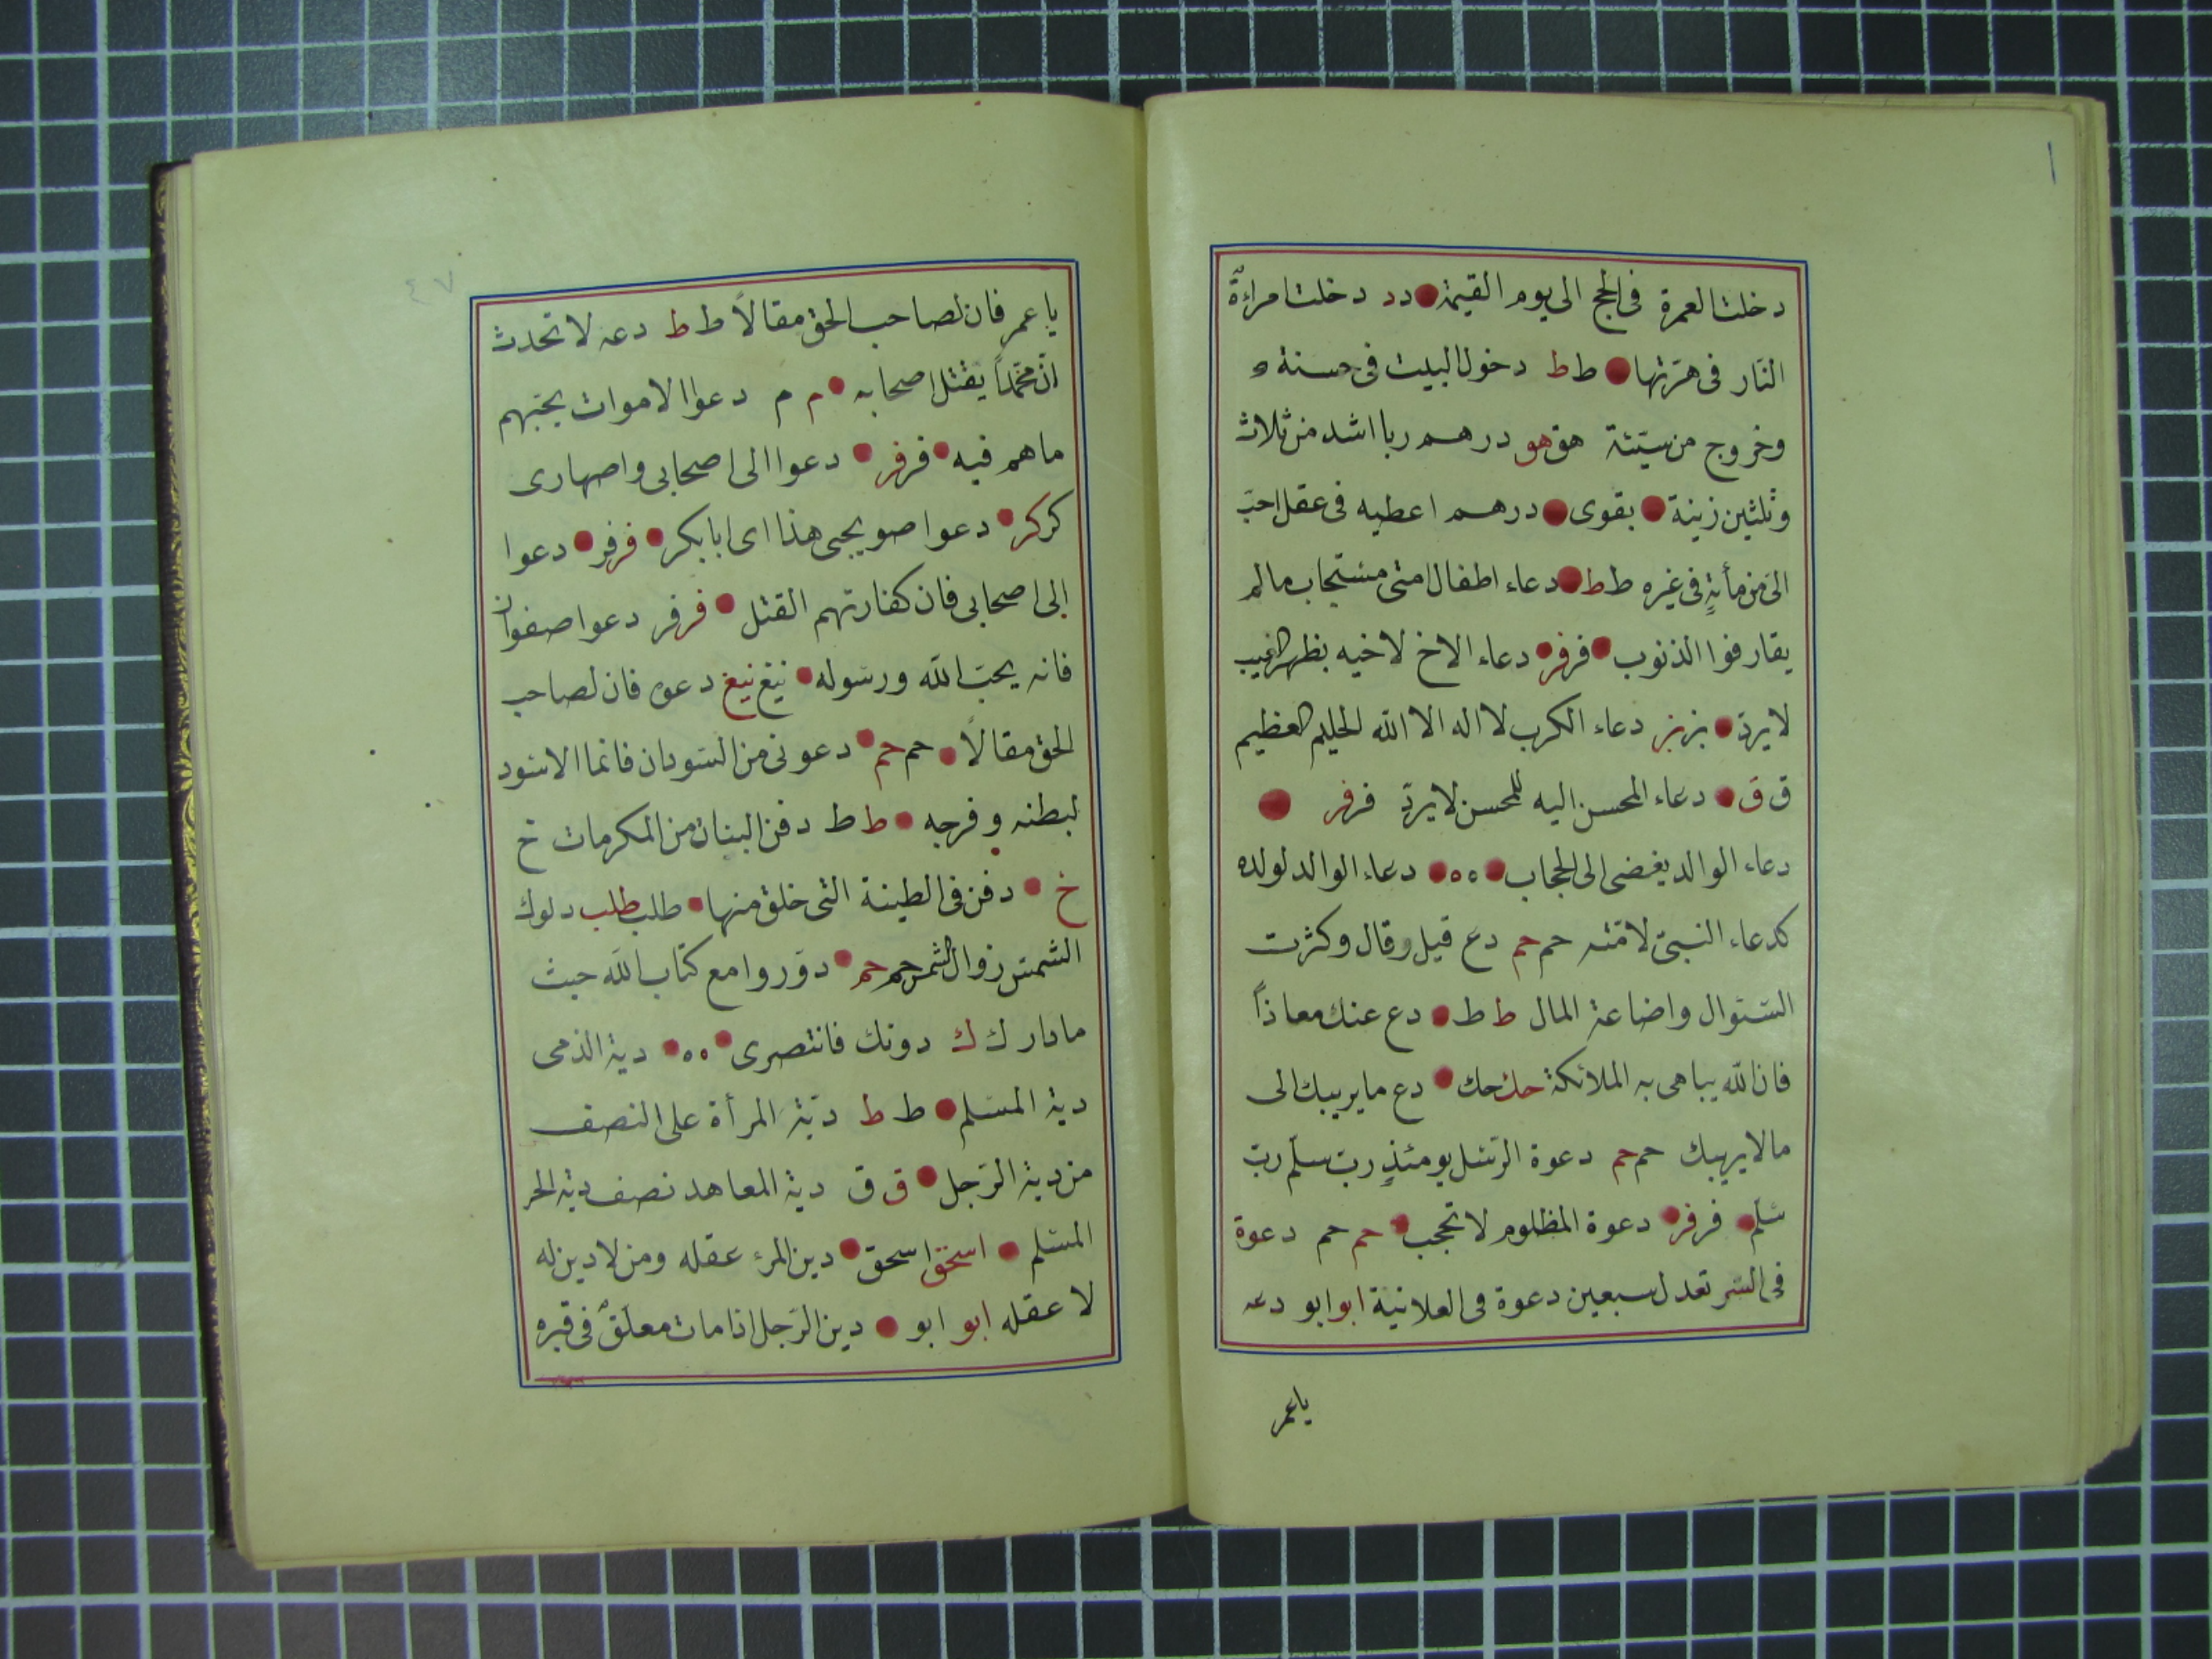 دخلت العمرة فى الحج الى يوم القيمة دد دخلت امراءة
النار فى هرتها ط ط دخول البيت فى حسنة و
وخروج من سيئة هق هو درهم ربا اشد من ثلاث
وثلثين زينة بقوى درهم اعطيه فى عقل احبّ
الىّ من مأية فى غيره ط ط دعاء اطفال امتى مستجاب مالم
يقارفوا الذنوب فر فر دعاء الاخ لاخيه بظهر الغيب
لا يردّ بز بز دعاء الكرب لا اله الا الله الحليم العظيم
ق ق دعاء المحسن اليه للمحسن لا يردّ فر فر
دعاء الوالد يغضى الى الحجاب ه ه دعاء الوالد لولده
كدعاء النبىّ لامّته حم حم دع قيل وقال وكثرت
السئوال واضاعة المال ط ط دع عنك معاذاً
فان الله يباهى به الملائكة حك حك دع ما يريبك الى
ما لا يريبك حم حم دعوة الرّسل يومئذٍ ربّ سلّم ربّ
سلّم فر فر دعوة المظلوم لا تحجب حم حم دعوة
فى السّر تعدل سبعين دعوة فى العلانية ابو ابو دعه
يا عمر
٤٧
يا عمر فان لصاحب الحق مقالاً ط ط دعه لا تحدث
انّ محمّداً يقتل اصحابه م م دعوا الاموات بحبّهم
ما هم فيه فر فر دعوا الى اصحابى واصهارى
كر كر دعوا صويحبى هذا اى ابا بكر فر فر دعوا
الى اصحابى فان كفارتهم القتل فر فر دعوا صفوان
فانه يحبّ الله ورسوله نيغ نيغ دعوه فان لصاحب
الحق مقالاً حم حم دعونى من السّودان فانما الاسود
لبطنه وفرجه ط ط دفن البنات من المكرمات خ
خ دفن فى الطينة التى خلق منها طلب طلب دلوك
الشمس زوال الشمس حم حم دوّروا مع كتاب الله حيث
مادار ك ك دونك فانتصرى ه ه دية الذمى
دية المسلم ط ط ديّة المرأة على النصف
من دية الرّجل ق ق دية المعاهد نصف دية الحر
المسلم اسحق اسحق دين المرء عقله ومن لا دين له
لا عقله ابو ابو دين الرّجل اذا مات معلّق فى قبره